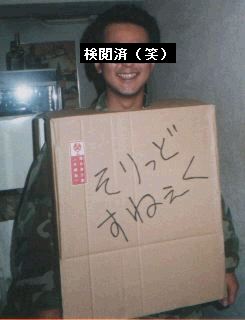 検閲済（笑）
そりっど
すねえく